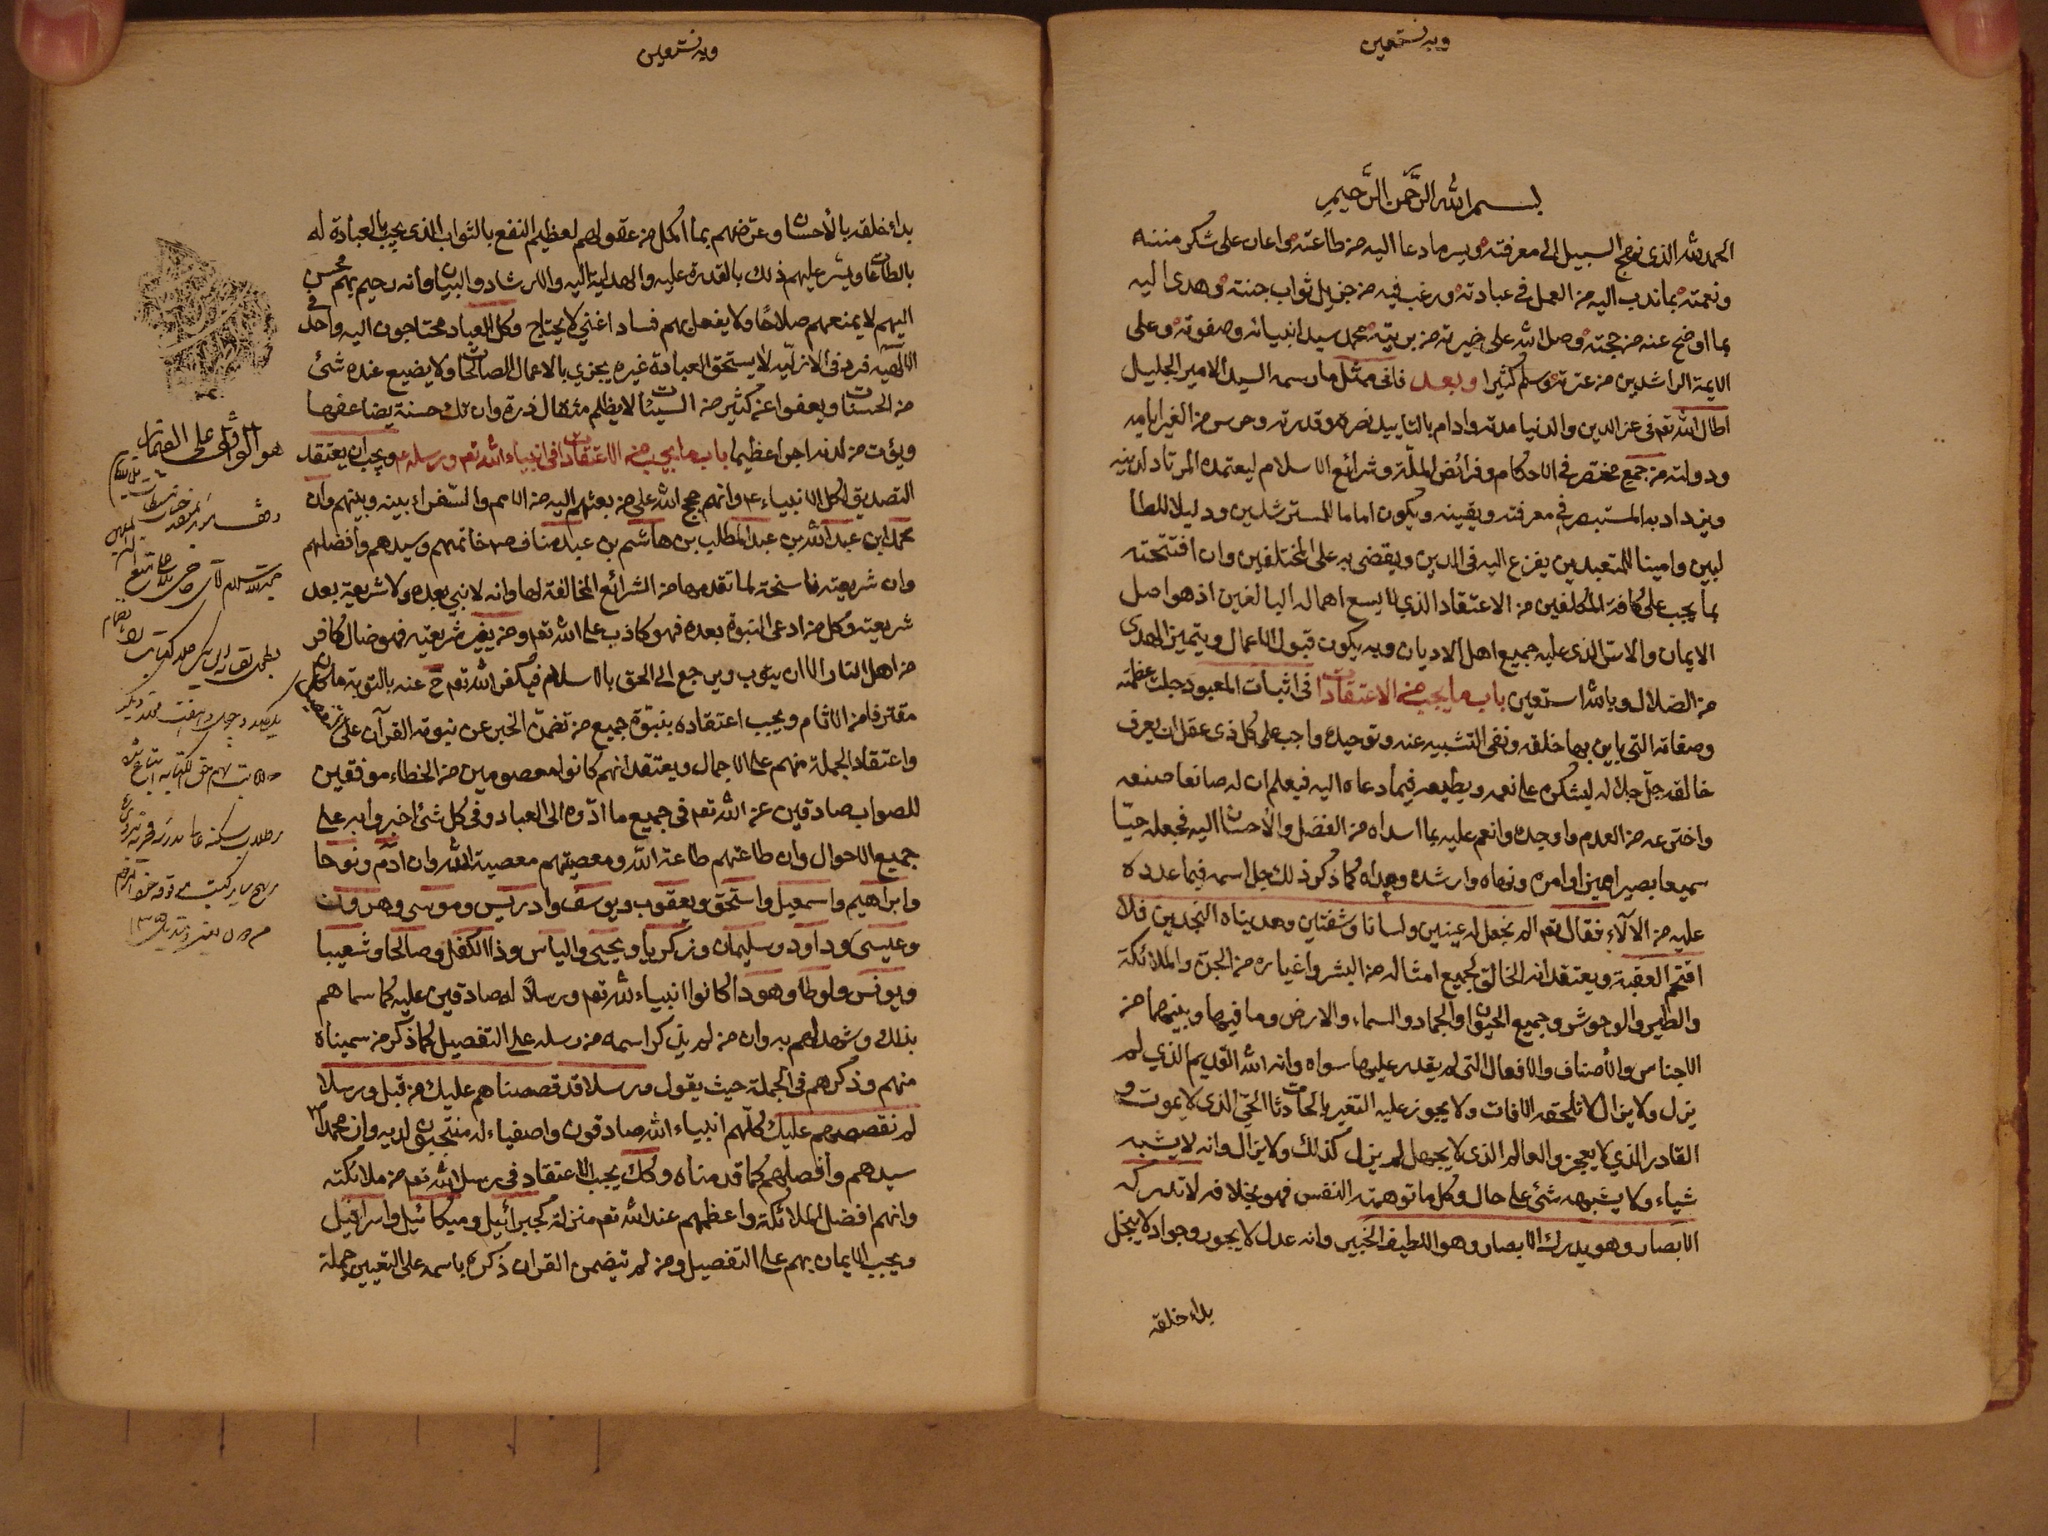 وبه نستعين
بسم الله الرحمن الرحيم
الحمد لله الذي نهج السبيل الى معرفته ويسر ما دعا اليه من طاعته واعان على شكر مننه
ونعمته بما ندب اليه من العمل في عبادته ورغب فيه من جزيل ثواب جنته وهدى اليه
بما اوضح عنه من حجته وصلى الله على خيرته من بريته محمد سيد انبيائه وصفوته وعلى
الايمة الراشدين من عترته وسلم كثيرا وبعد فاني ممتثل ما رسمه السيد الامير الجليل
اطال الله تعم في عز الدين والدنيا مدته وادام بالتاييد نصره وقدرته وحرس من الغير ايامه
ودولته من جمع مختصر في الاحكام وفرائض الملة وشرائع الاسلام ليعتمده المرتاد لدينه
ويزداد به المستبصر في معرفته ويقينه ويكون اماما للمسترشدين ودليلا للطا
لبين وامينا للمتعبدين يفزع اليه في الدين ويقضى به على المختلفين وان افتتحته
بما يجب على كافة المكلفين من الاعتقاد الذي لا يسع اهماله البالغين اذ هو اصل
الايمان والاس الذي عليه جميع اهل الاديان وبه يكون قبول الاعمال ويتميز الهدى
من الضلال وبالله استعين باب ما يجب من الاعتقاد في اثبات المعبود جلت عظمته
وصفاته التي باين بها خلقه ونفى التشبيه عنه وتوحيده واجب على كل ذي عقل ان يعرف
خالقه جل جلاله ليشكره على نعمه ويطيعه فيما دعاه اليه فيعلم ان له صانعا صنعه
واخترعه من العدم واوجده وانعم عليه بما اسداه من الفضل والاحسان اليه فجعله حيّا
سميعا بصيرا مميزا وامره ونهاه وارشده وهداه كما ذكر ذلك جل اسمه فيما عدده
عليه من الآلاء فقال تعم الم نجعل له عينين ولسانا وشفتين وهديناه النجدين فلا
اقتحم العقبة ويعتقد انه الخالق لجميع امثاله من البشر واغياره من الجن والملائكة
والطير والوحوش وجميع الحيوان والجماد والسماء والارض وما فيها وبينهما من
الاجناس والأصناف والافعال التي لم يقدر عليها سواه وانه الله القديم الذي لم
يزل ولا يزال لا تلحقه الافات ولا يجوز عليه التغير بالحادثات الحي الذي لا يموت و
القادر الذي لا يعجز والعالم الذي لا يجهل لم يزل كذلك ولا يزال وانه لا يشبه
شياء ولا يشبهه شئ على حال وكل ما توهمته النفس فهو بخلافه لا تدركه
الابصار وهو يدرك الابصار وهو اللطيف الخبير وانه عدل لا يجور وجواد لا يبخل
بداء خلقه
وبه نستعين
بداء خلقه بالأحسان وعرضهم بما اكمل من عقولهم لعظيم النفع بالثواب الذي يجب بالعبادة له
بالطاعات ويسر عليهم ذلك بالقدرة عليه والهداية اليه والارشاد والبيان وانه رحيم بهم محسن
اليهم لا يمنعهم صلاحًا ولا يفعل بهم فسادا غني لا يحتاج وكل العباد محتاجون اليه واحد في
الالهيه فرد في الازليّه لا يستحق العبادة غيره يجزي بالاعمال الصالحات ولا يضيع عنده شئ
من الحسنات ويعفوا عن كثير من السيئات لا يظلم مثقال ذرة وان تك حسنة يضاعفها
ويؤت من لدنه اجرا عظيما باب ما يجب من الاعتقاد في انبياء الله تعم ورسله ع ويجب ان يعتقد
التصديق لكل الانبياء ع وانهم حجج الله على من بعثهم اليه من الامم والسفراء بينه وبينهم وان
محمد ابن عبد الله بن عبد المطلب بن هاشم بن عبد مناف ص خاتمهم وسيدهم وافضلهم
وان شريعته ناسخة لما تقدمها من الشرائع المخالفة لها وانه لا نبي بعده ولا شريعة بعد
شريعته وكل من ادعى النبوة بعده فهو كاذب على الله تعم ومن يغير شريعته فهو ضال كافر
من اهل النار الا ان يتوب ويرجع الى الحق بالاسلام فيكفر الله تعم ح عنه بالتوبة ما كان
مقترفا من الآثام ويجب اعتقاده بنبوة جميع من تضمن الخبر عن نبوته القرآن على
واعتقاد الجملة منهم على الاجمال ويعتقد انهم كانوا معصومين من الخطاء موفقين
للصواب صادقين عن الله تعم في جميع ما ادّوه الى العباد وفي كل شئ اخبروا به على
جميع الاحوال وان طاعتهم طاعة الله ومعصيتهم معصية الله وان ادم ونوحا
وابراهيم واسمعيل واسحق ويعقوب ويوسف وادريس وموسى وهرون
وعيسى وداود وسليمان وزكريا ويحيى والياس وذا الكفل وصالحا وشعيبا
ويونس ولوطا وهودا كانوا انبياء لله تعم ورسلا له صادقين عليه كما سماهم
بذلك وشهد لهم به وان من لم يذكر اسمه من رسله على التفصيل كما ذكر من سميناه
منهم وذكرهم في الجملة حيث يقول ورسلا قد قصصناهم عليك من قبل ورسلا
لم نقصصهم عليك كلهم انبياء الله صادقون واصفياء له منتجبون لديه وان محمدا ص
سيدهم وافضلهم كما قدمناه وكك يجب الاعتقاد في رسل الله تعم من ملائكته
وانهم افضل الملائكة واعظمهم عند الله تعم منزلة كجبرائيل وميكائيل واسرافيل
ويجب الايمان بهم على التفصيل ومن لم تيضمن القران ذكره باسمه على التعيين جملة
هو الواقف على الضمائر